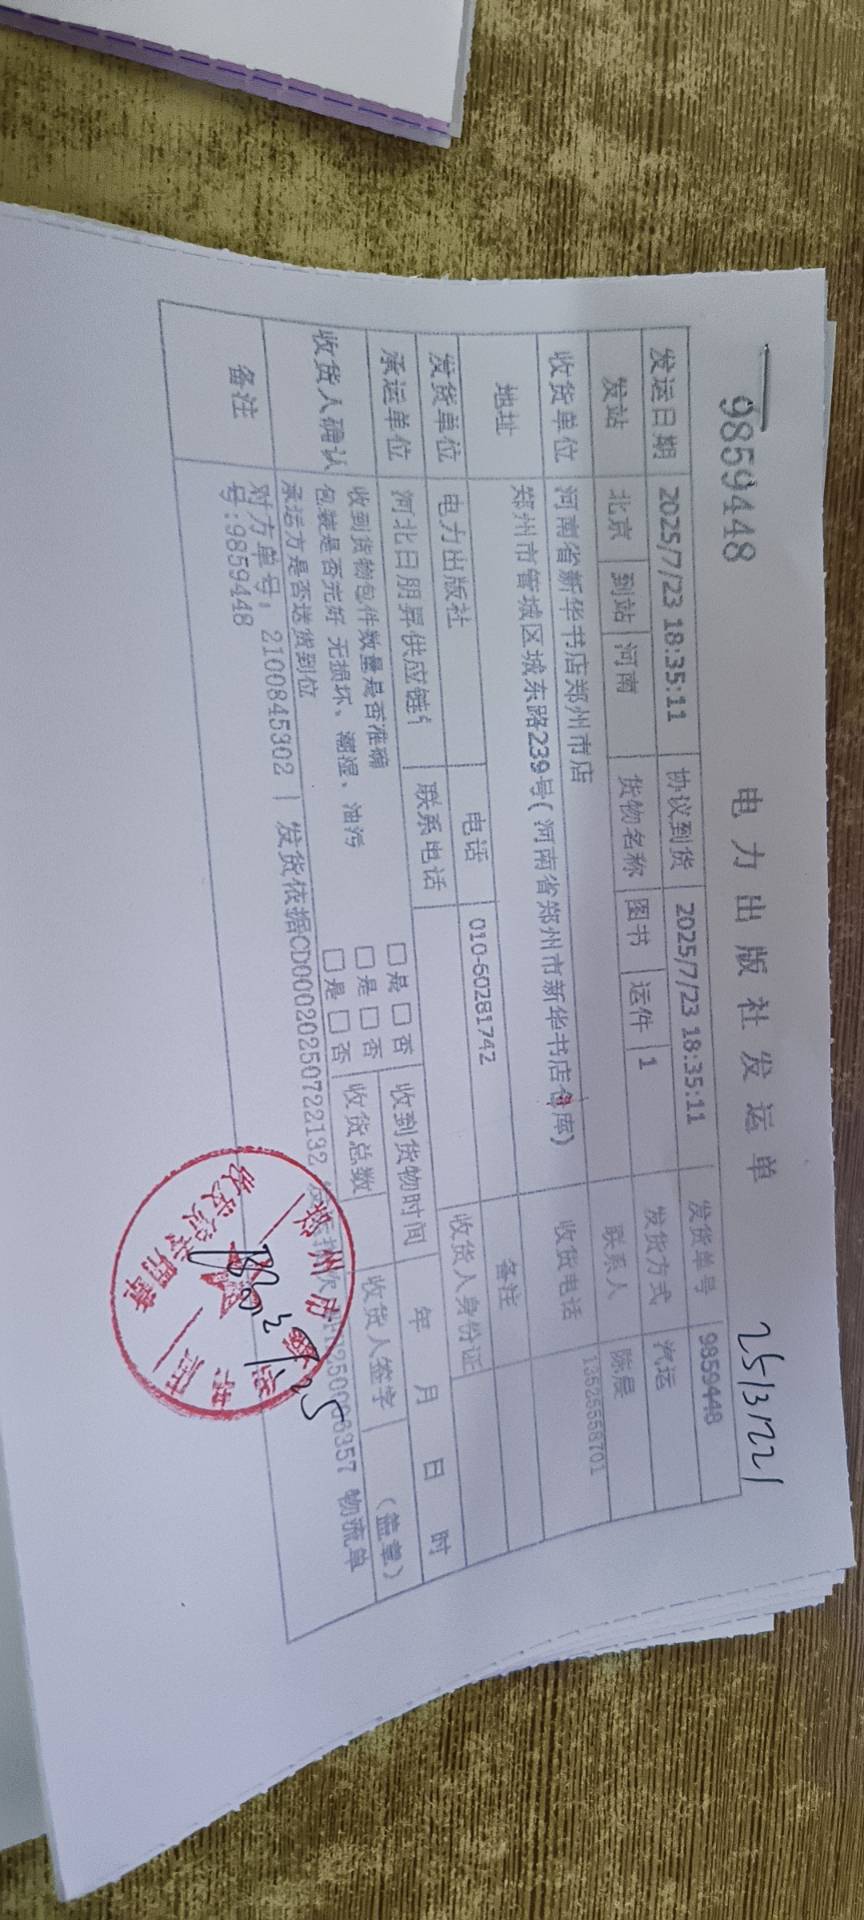 9859448
电力出版社发运单
25131221
发运日期 2025/7/23 18:35:11 协议到货 2025/7/23 18:35:11 发货单号 9859448
发站 北京 到站 河南 货物名称 图书 运件 1 发货方式 汽运
收货单位 河南省新华书店郑州市店 联系人 陈晨
地址 郑州市管城区城东路239号(河南省郑州市新华书店仓库) 收货电话 13525558701
发货单位 电力出版社 电话 010-60281742 备注
承运单位 河北日朋昇供应链 联系电话 收货人身份证
收货人确认 收到货物包件数量是否准确 □是□否 收到货物时间 年 月 日 时
包装是否完好 无损坏、潮湿、油污 □是□否 收货总数 收货人签字 (盖章)
承运方是否送货到位 □是□否
备注 对方单号：2100845302 | 发货依据CD00020250722132 物流单
号:9859448
郑州市 书店
收发货专用章